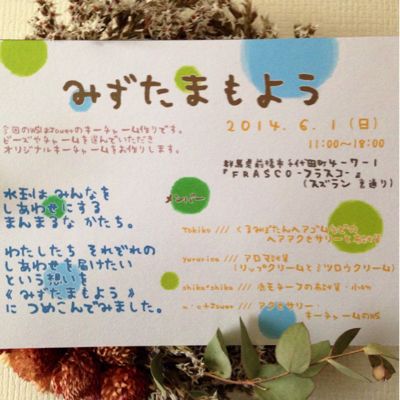 みずたまもよう
2014. 6. 1 (日)
11:00~18:00
今回のWSはJouerのキーチャーム作りです。
ビーズやチャームを選んでいただき
オリジナルキーチャームをお作りします。
群馬県前橋市千代田町4-7-1
『FRASCO-フラスコ-』
(スズラン 裏通り)
水玉は みんなを
しあわせにする
まんまるな かたち。
わたしたち それぞれの
しあわせを届けたい
という想いを
《みずたまもよう》
に つめこんでみました。
メンバー
tokiko /// くるみぼたんヘアゴム
ヘアアクセサリーと布雑貨
yururina /// アロマ雑貨
(リップクリームとミツロウクリーム)
shikashika /// 鹿モチーフの布雑貨・小物
Jouer /// アクセサリー・
キーチャームのWS